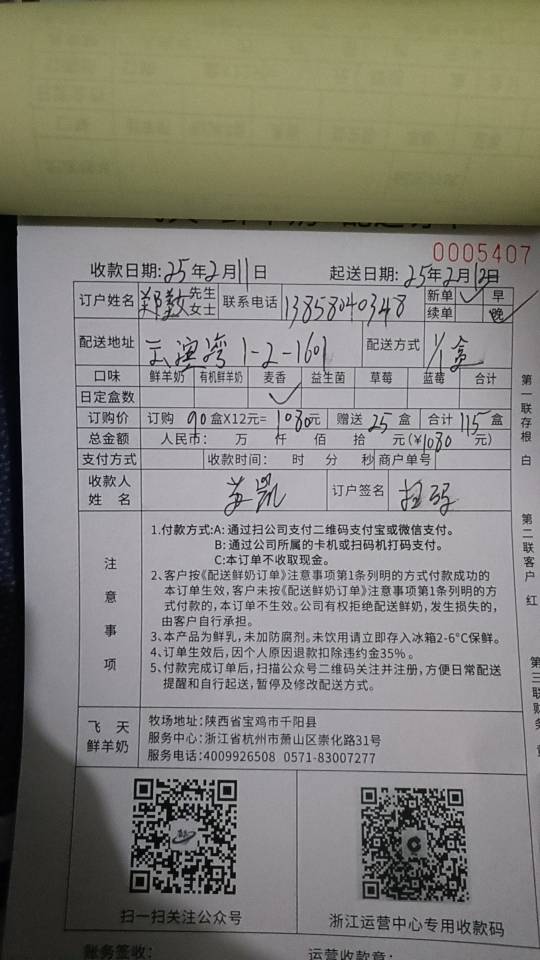 0005407
收款日期:25年2月11日 起送日期:25年2月12日
订户姓名 郑 先生 女士 联系电话 13858040348 新单 ✓ 早
续单 晚 ✓
配送地址 云滨湾1-2-1601 配送方式 1/盒
口味 鲜羊奶 有机鲜羊奶 麦香 益生菌 草莓 蓝莓 合计
日定盒数 ✓
订购价 订购 90 盒X12元= 1080元 赠送 25 盒 合计 115 盒
总金额 人民币: 万 仟 佰 拾 元(¥1080 元)
支付方式 收款时间: 时 分 秒 商户单号
收款人 姓名 凯 订户签名 扫码
注意事项
1.付款方式:A:通过扫公司支付二维码支付宝或微信支付。
B:通过公司所属的卡机或扫码机打码支付。
C:本订单不收取现金。
2、客户按《配送鲜奶订单》注意事项第1条列明的方式付款成功的
本订单生效,客户未按《配送鲜奶订单》注意事项第1条列明的方
式付款的,本订单不生效。公司有权拒绝配送鲜奶,发生损失的,
由客户自行承担。
3、本产品为鲜乳,未加防腐剂。未饮用请立即存入冰箱2-6°C保鲜。
4、订单生效后,因个人原因退款扣除违约金35%。
5、付款完成订单后,扫描公众号二维码关注并注册,方便日常配送
提醒和自行起送,暂停及修改配送方式。
飞天
鲜羊奶
牧场地址:陕西省宝鸡市千阳县
服务中心:浙江省杭州市萧山区崇化路31号
服务电话:4009926508 0571-83007277
扫一扫关注公众号 浙江运营中心专用收款码
账务签收: 运营收款章:
第一联存根 白
第二联客户 红
第三联财务